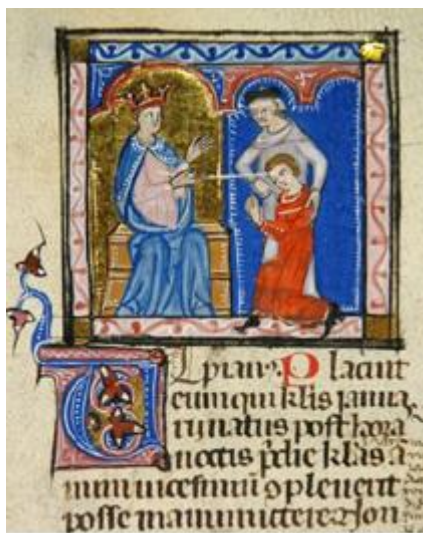 Ulpian9. Placuit
eum qui klis ianua
rij natus post hora
noctis p̄die klas a
nnum uicesimū ꝯpleuerit
posse manumittere non